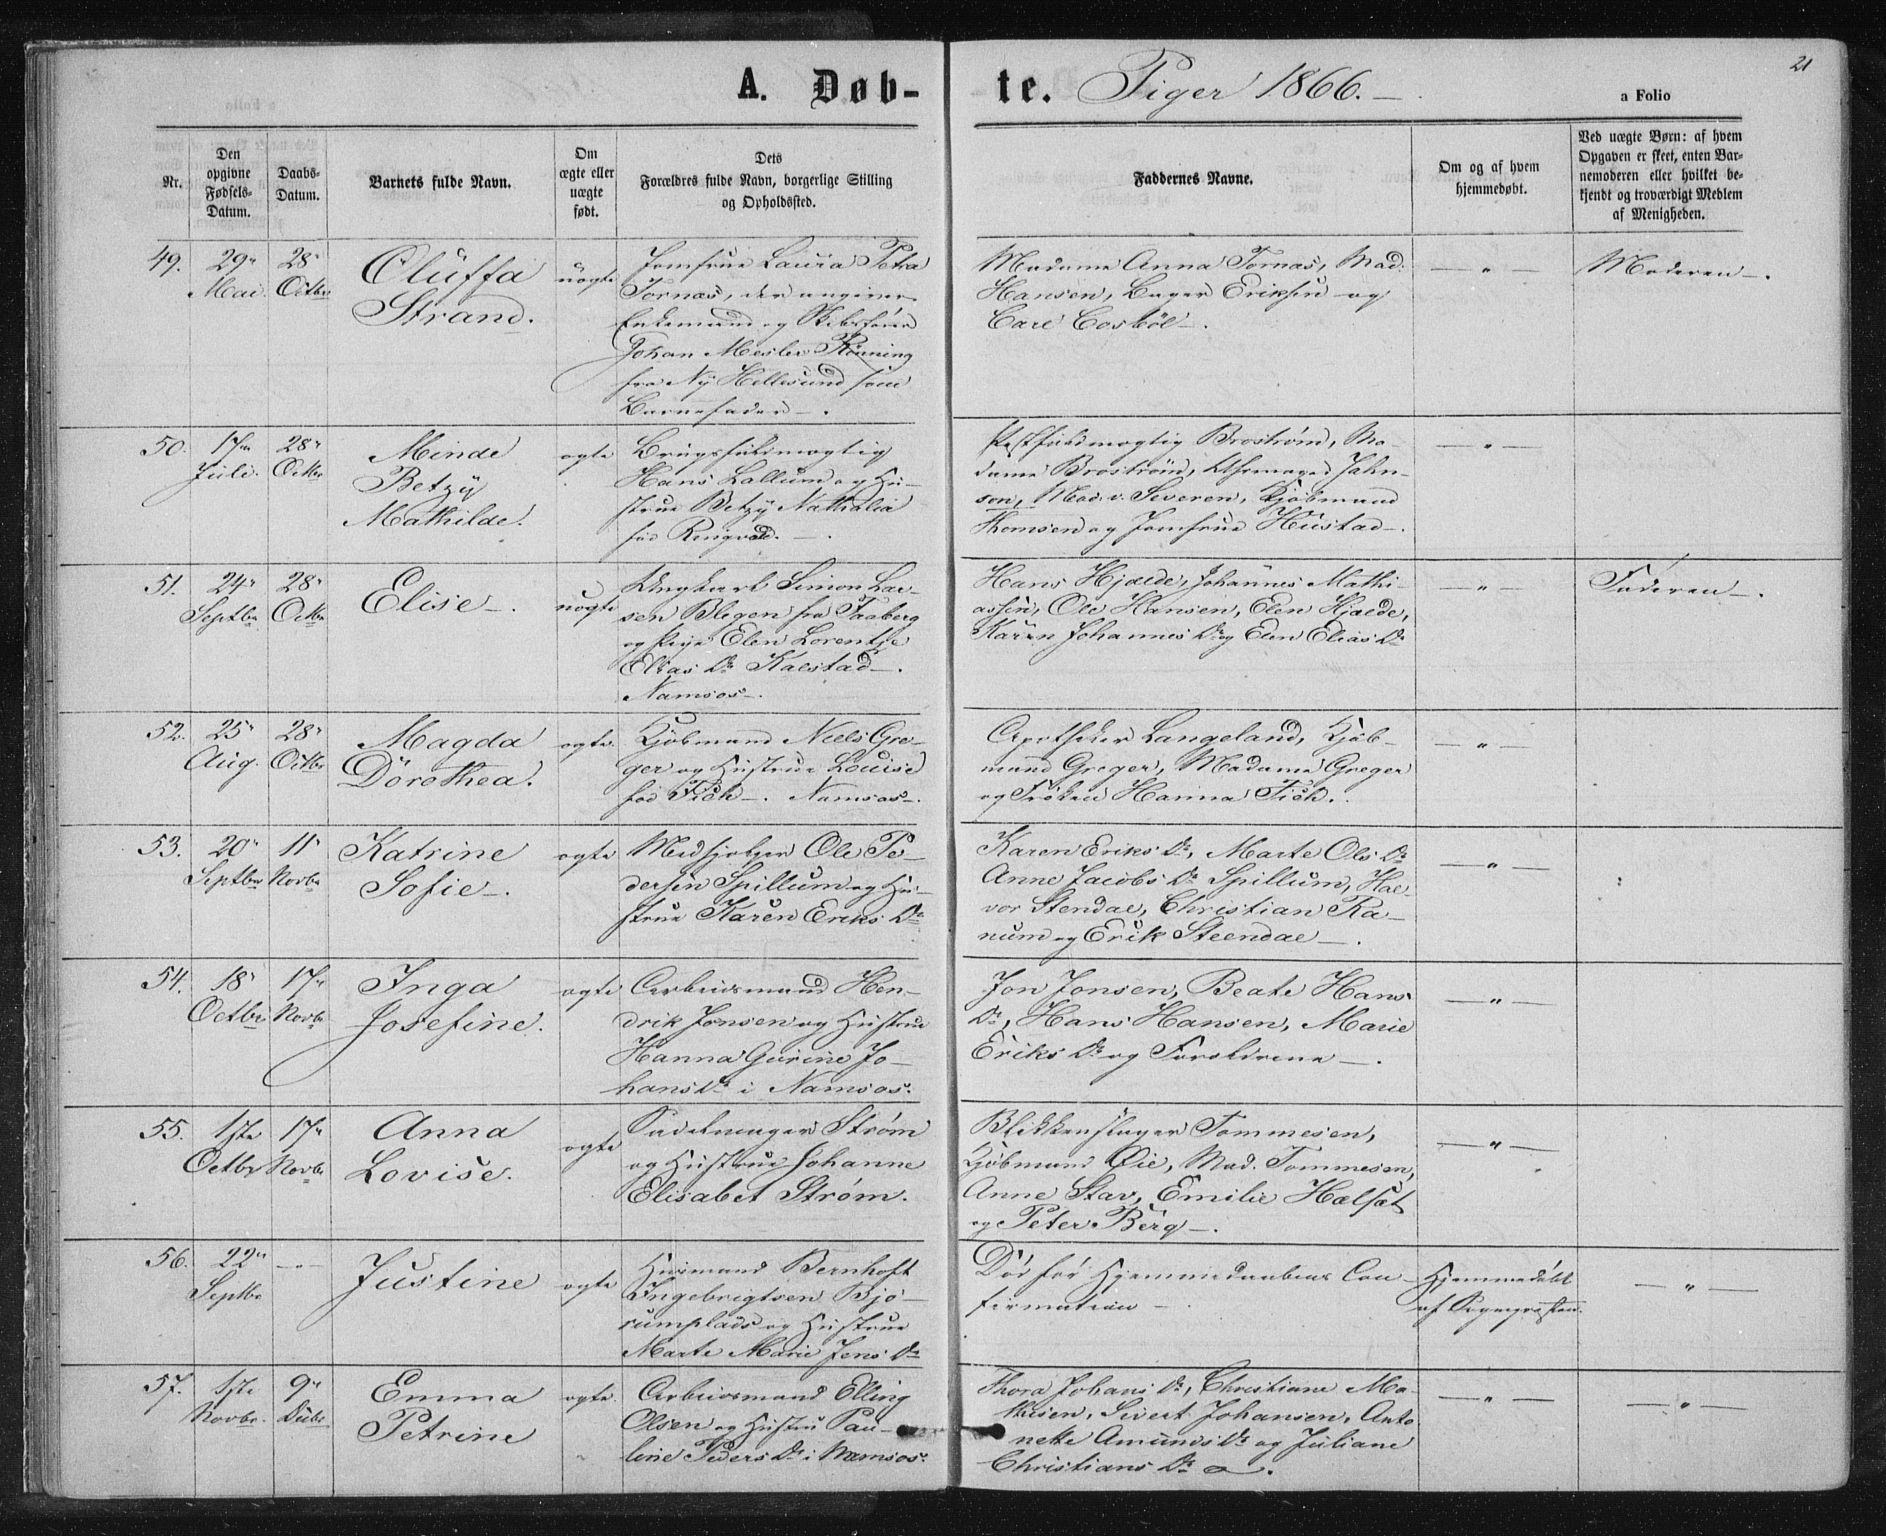 A. Døb-
te. Piger 1866.
21
a Folio
Nr.
Den
opgivne
Fødsels-
Datum.
Daabs-
Datum.
Barnets fulde Navn.
Om
ægte eller
uægte
født.
Dets
Forældres fulde Navn, borgerlige Stilling
og Opholdssted.
Faddernes Navne.
Om og af hvem
hjemmedøbt.
Ved uægte Børn: af hvem
Opgaven er skeet, enten Bar-
nemoderen eller hvilket be-
kjendt og troværdigt Medlem
af Menigheden.
49.
29de
Mai.
28
Octbr
Oluffa
Strand.
uægte
Jomfrue Laura Petra
Tornæs, der angiver
Enkemand og Skibsfører
Johan Mesler Rønning
fra Ny Hellesund som
Barnefader.
Madame Anna Tornæs, Mad.
Hansen, Bager Eriksen og
Carl
— " —
Moderen.
50.
17de
Juli.
28
Octbr
Minde
Betzy
Mathilde.
ægte
Brugsfuldmægtig
Hans Lallum og Hu-
strue Betzy Nathalia
fød
Postfuldmægtig Brostrøm, Ma-
dame Brostrøm, Uhrmager Jahn-
sen, Mad. v. Severen, Kjøbmand
Thomsen og Jomfrue Hustad.
— " —
51.
24
Septbr
28
Octbr
Elise.
uægte
Ungkarl Simon Lar-
sen Blegen fra Faaberg
og Pige Elen Lorentse
Elias Dr Kalstad.
Namsos.
Hans Hjælde, Johannes Mathi-
assen, Ole Hansen, Elen Hjælde,
Karen Johannes Dr og Elen Elias Dr
— " —
Faderen.
52.
25
Aug.
28
Octbr
Magda
Dorothea.
ægte.
Kjøbmand Niels Gre-
ger og Hustrue Louise
fød Fich. Namsos.
Apotheker Langeland, Kjøb-
mand Greger, Madame Greger
og Frøken Hanna Fich.
— " —
53.
20
Septbr
11
Novbr
Katrine
Sofie.
ægte
Medhjelper Ole Pe-
dersen Spillum og Hu-
strue Karen Eriks Dr
Karen Eriks Dr, Marte Ols Dr
Anne Jacobs Dr Spillum, Hal-
vor Stendal, Christian Ra-
num og Erik Steendal.
— " —
54.
18
Octbr
17
Novbr
Inga
Josefine.
ægte
Arbeidsmand Hen-
drik Jonsen og Hustrue
Hanna Gurine Jo-
hans Dr i Namsos.
Jon Jonsen, Beate Hans
Dr, Hans Hansen, Marie
Eriks Dr og Forældrene.
— " —
55.
1ste
Octbr
17
Novbr
Anna
Lovise.
ægte
Sadelmager Strøm
og Hustrue Johanne
Elisabet Strøm.
Blikkenslager Tommesen,
Kjøbmand Øie, Mad. Tommesen,
Anne Stav, Emilie Halset
og Peter Berg.
— " —
56.
22
Septbr
— " —
Justine
ægte
Husmand Bernhoft
Ingebrigtsen Bjø-
rumplads og Hustrue
Marte Marie Jens Dr
Død før Hjemmedaabens Con-
firmation.
Hjemmedøbt
af Sognepræsten.
— " —
57.
1ste
Novbr.
9de
Decbr
Emma
Petrine
ægte.
Arbeidsmand Elling
Olsen og Hustru Pau-
line Peders Dr i Namsos.
Thora Johans Dr, Christiane Ma-
thisen, Sivert Johansen, Anto
nette Amunds Dr og Juliane
Christians Dr.
— " —
— " —